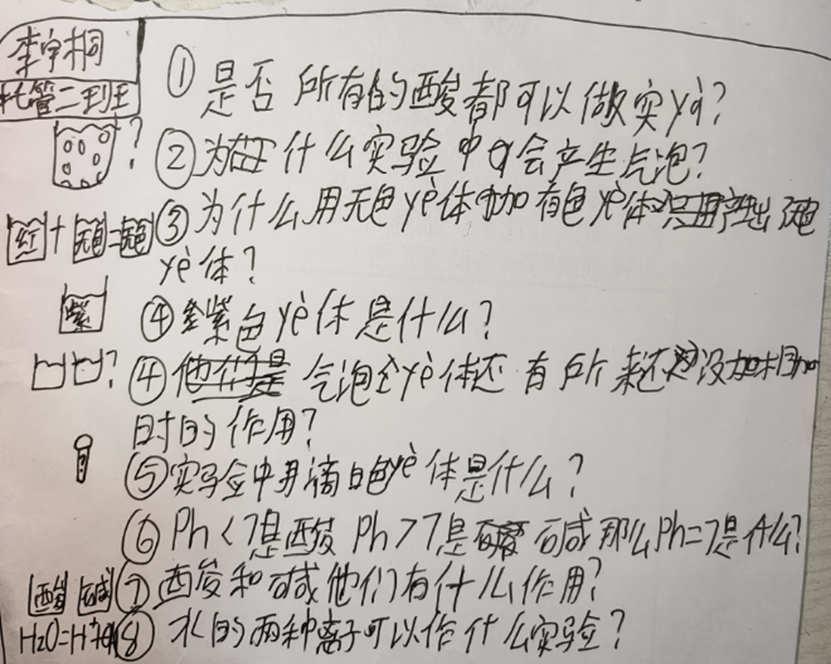 李宇桐
托管二到王
①是否所有的酸都可以做实yà?
?
②为什么实验中会产生气泡?
③为什么用无色yè体加有色yè体产出
红+无色=无色
yè体?
紫
④紫色yè体是什么?
?
④气泡yè体还有所来还没加
时的作用?
⑤实验中用滴白色yè体是什么?
⑥Ph<7是酸 Ph>7是碱那么Ph=7是什么?
酸 碱
⑦酸和碱他们有什么作用?
H2O=H+
⑧水的两种离子可以作什么实验?